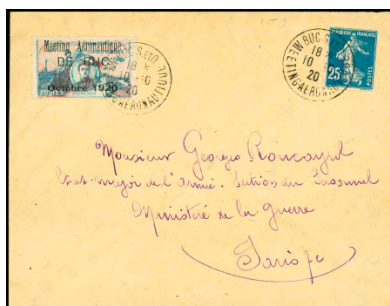 Meeting Aéronautique
DE BUC
Octobre 1920
POSTES
BUC
MEETING AERONAUTIQUE
18
10 - 10
20
BUC
MEETING AERONAUTIQUE
18
10 - 10
20
25
POSTES
Monsieur Georges
Etat-major de l'armée. Section du Personnel
Ministère de la Guerre
Paris 7e